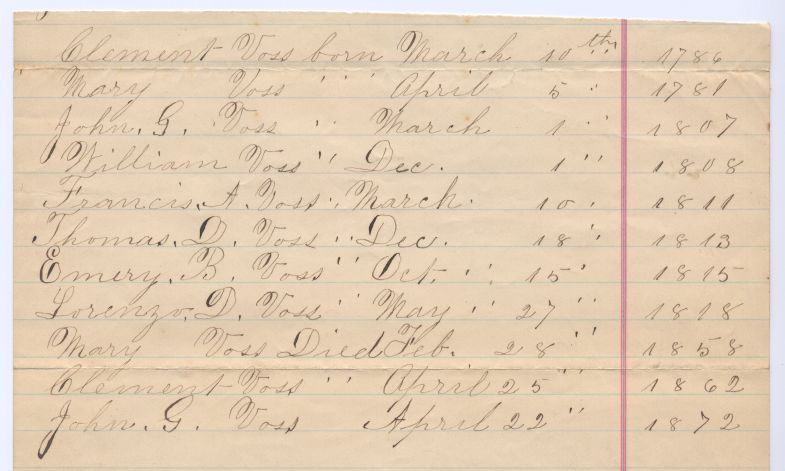 Clement Voss born March 10th 1786
Mary Voss " " April 5 " 1781
John. G. Voss " March 1 " 1807
William Voss " Dec. 1 " 1808
Francis. A. Voss " March. 10 " 1811
Thomas. D. Voss " Dec. 18 " 1813
Emery. B. Voss " Oct. " 15 " 1815
Lorenzo. D. Voss " May " 27 " 1818
Mary Voss Died Feb. 28 " 1858
Clement Voss " April 25 " 1862
John. G. Voss April 22 " 1872